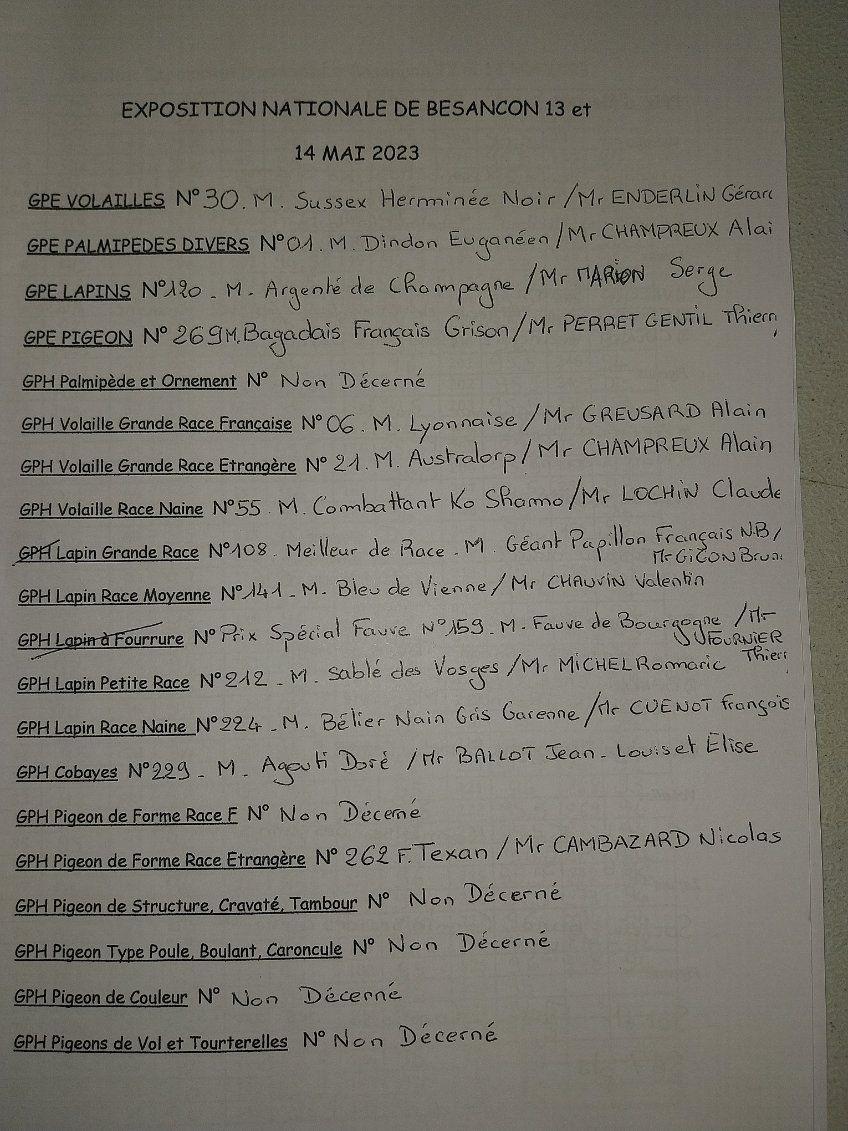 EXPOSITION NATIONALE DE BESANCON 13 et
14 MAI 2023
GPE VOLAILLES N° 30. M. Sussex Herminée Noir / Mr ENDERLIN Gérard
GPE PALMIPEDES DIVERS N° 01. M. Dindon Euganéen / Mr CHAMPREUX Alai
GPE LAPINS N° 120 - M. Argenté de Champagne / Mr MARION Serge
GPE PIGEON N° 269 M. Bagadais Français Grison / Mr PERRET GENTIL Thierr
GPH Palmipède et Ornement N° Non Décerné
GPH Volaille Grande Race Française N° 06. M. Lyonnaise / Mr GREUSARD Alain
GPH Volaille Grande Race Etrangère N° 21. M. Australorp / Mr CHAMPREUX Alain
GPH Volaille Race Naine N° 55. M. Combattant Ko Shamo / Mr LOCHIN Claude
GPH Lapin Grande Race N° 108. Meilleur de Race - M. Géant Papillon Français N.B /
Mr GIGON Bruno
GPH Lapin Race Moyenne N° 141 - M. Bleu de Vienne / Mr CHAUVIN Valentin
GPH Lapin à Fourrure N° Prix Spécial Fauve N° 159 - M. Fauve de Bourgogne / Mr
FOURNIER
Thierr
GPH Lapin Petite Race N° 212 - M. Sablé des Vosges / Mr MICHEL Romaric
GPH Lapin Race Naine N° 224 - M. Bélier Nain Gris Garenne / Mr CUENOT François
GPH Cobayes N° 229 - M. Agouti Doré / Mr BALLOT Jean-Louis et Elise
GPH Pigeon de Forme Race F N° Non Décerné
GPH Pigeon de Forme Race Etrangère N° 262 F. Texan / Mr CAMBAZARD Nicolas
GPH Pigeon de Structure, Cravaté, Tambour N° Non Décerné
GPH Pigeon Type Poule, Boulant, Caroncule N° Non Décerné
GPH Pigeon de Couleur N° Non Décerné
GPH Pigeons de Vol et Tourterelles N° Non Décerné